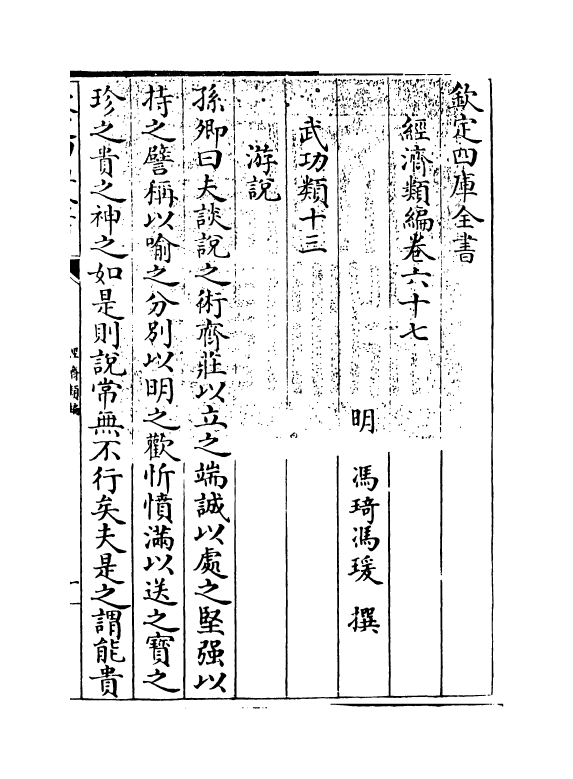 欽定四庫全書
經濟類編卷六十七
明 馮琦馮瑗 撰
武功類十三
游說
孫卿曰夫談說之術齊莊以立之端誠以處之堅强以
持之譬稱以喻之分別以明之歡忻憤滿以送之寶之
珍之貴之神之如是則說常無不行矣夫是之謂能貴